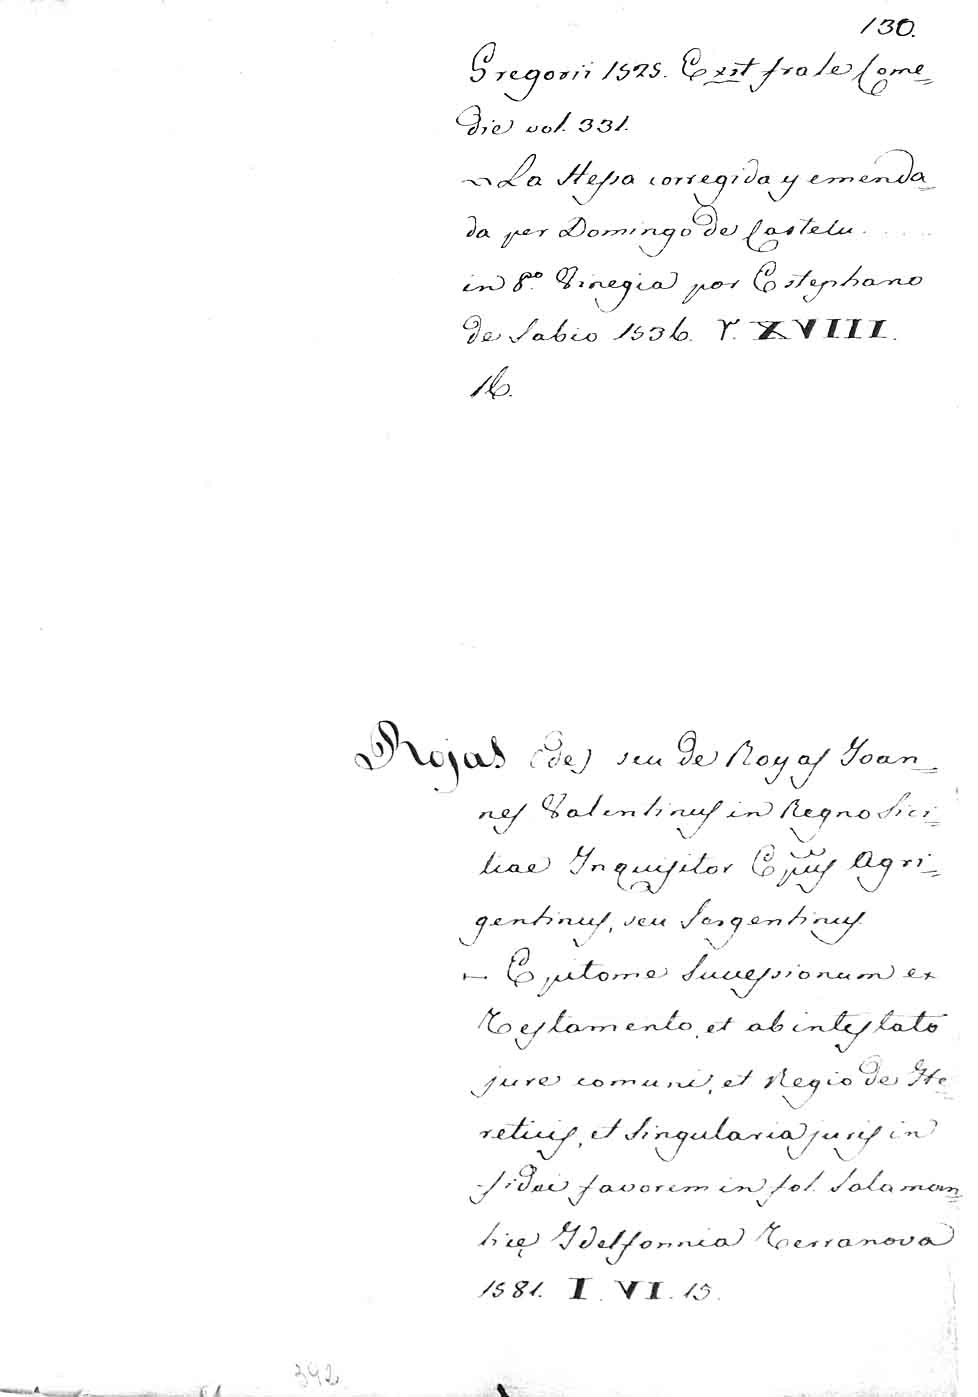 130.
Gregorii 1525. Exst frale Come=
die vol. 331.
~ La Stessa corregida y emenda=
da per Domingo de Castelu .....
in 8.º Vinegia por Estephano
de Sabio 1536. V. XVIII.
16.
Rojas (de) seu de Royas Joan=
nes Valentinus in Regno Sici=
liae Inquisitor Epũs Agri=
gentinus, seu Sergentinus
— Epitome Successionum ex
Testamento, et ab intestato
jure comuni, et Regio de He=
reticis, et singularia juris in
fidei favorem in fol. Salaman=
ticę Idelfonnia Terranova
1581. I. VI. 15.
392